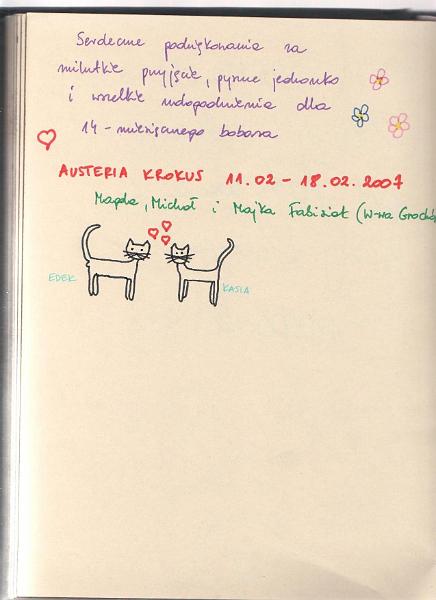 Serdeczne podziękowania za
milutkie przyjęcie, pyszne jedzonko
i wszelkie udogodnienia dla
14-miesięcznego bobasa
AUSTERIA KROKUS 11.02 - 18.02.2007
Magda, Michał i Majka Fabisiak (W-wa Grochów
EDEK
KASIA